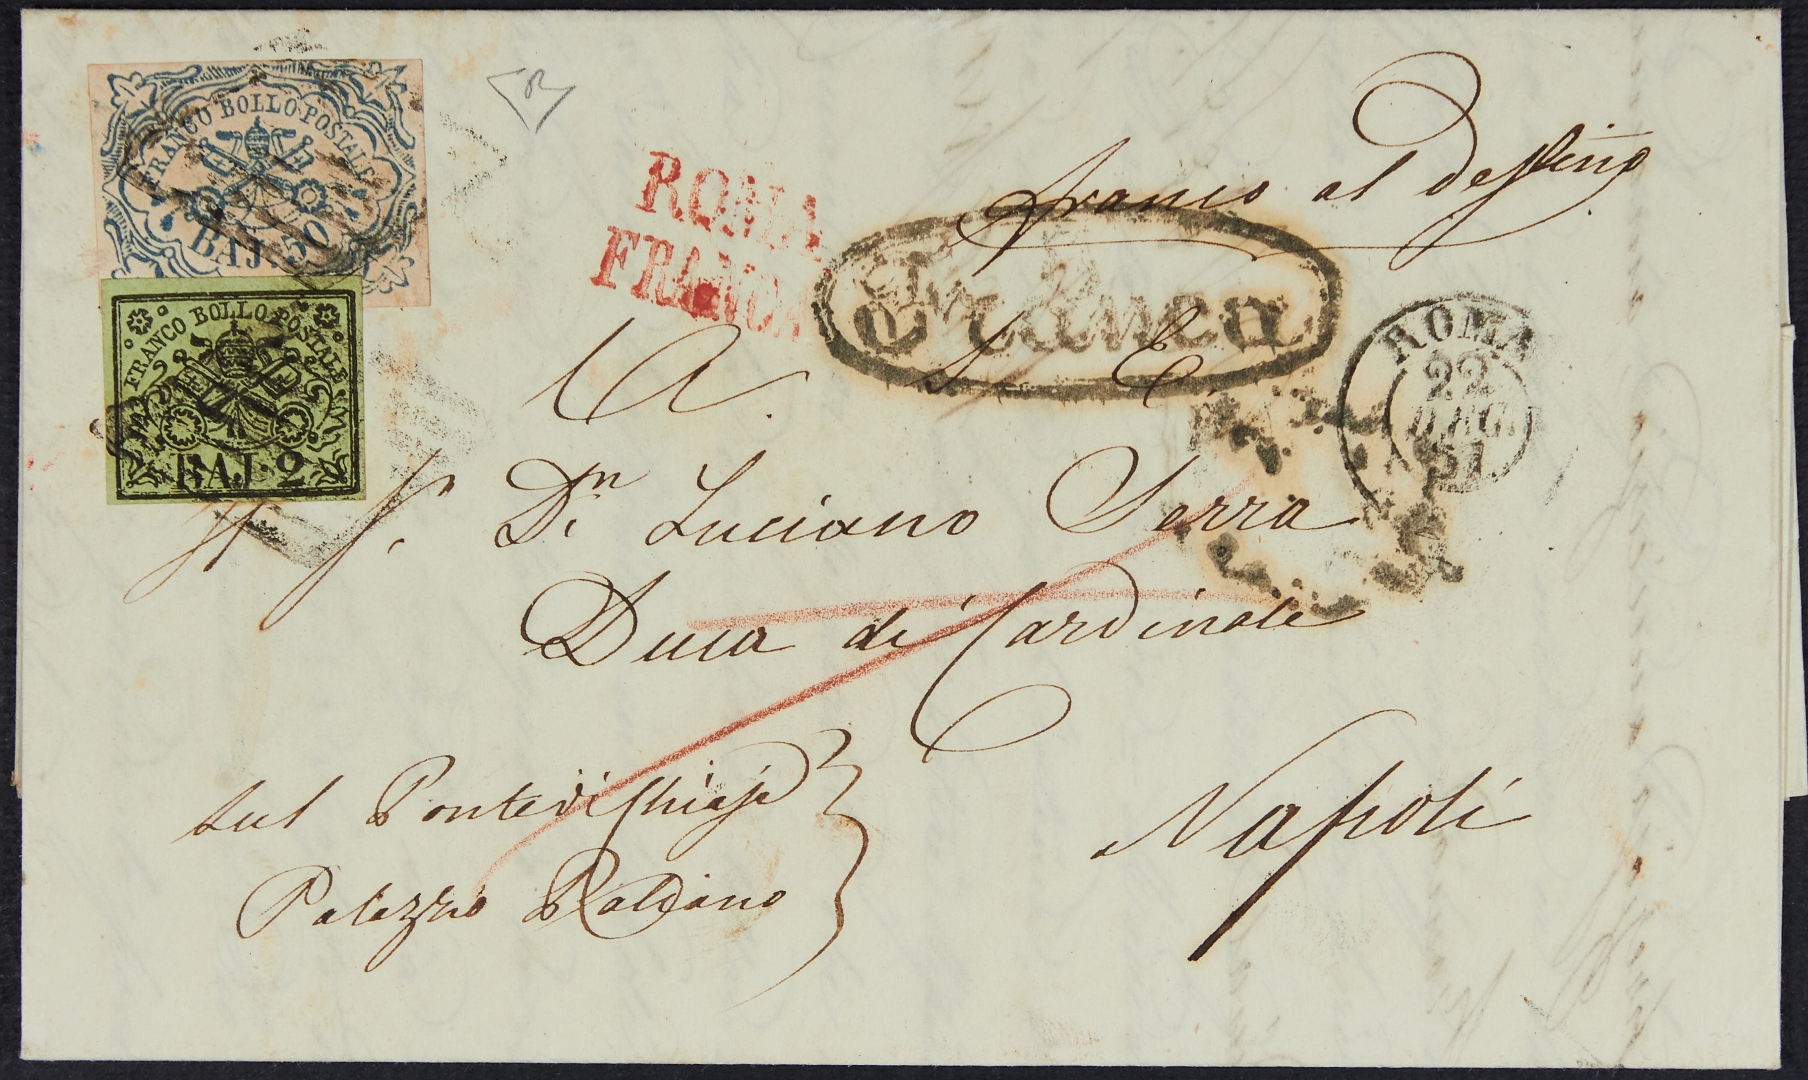 FRANCO BOLLO POSTALE
BAJ. 50
FRANCO BOLLO POSTALE
BAJ. 2
franco al Destino
ROMA
FRANCA
Franca
ROMA
22
51
A. S. E.
Dn Luciano Serra
Duca di Cardinale
Napoli
sul Ponte di Chiaja
Palazzo